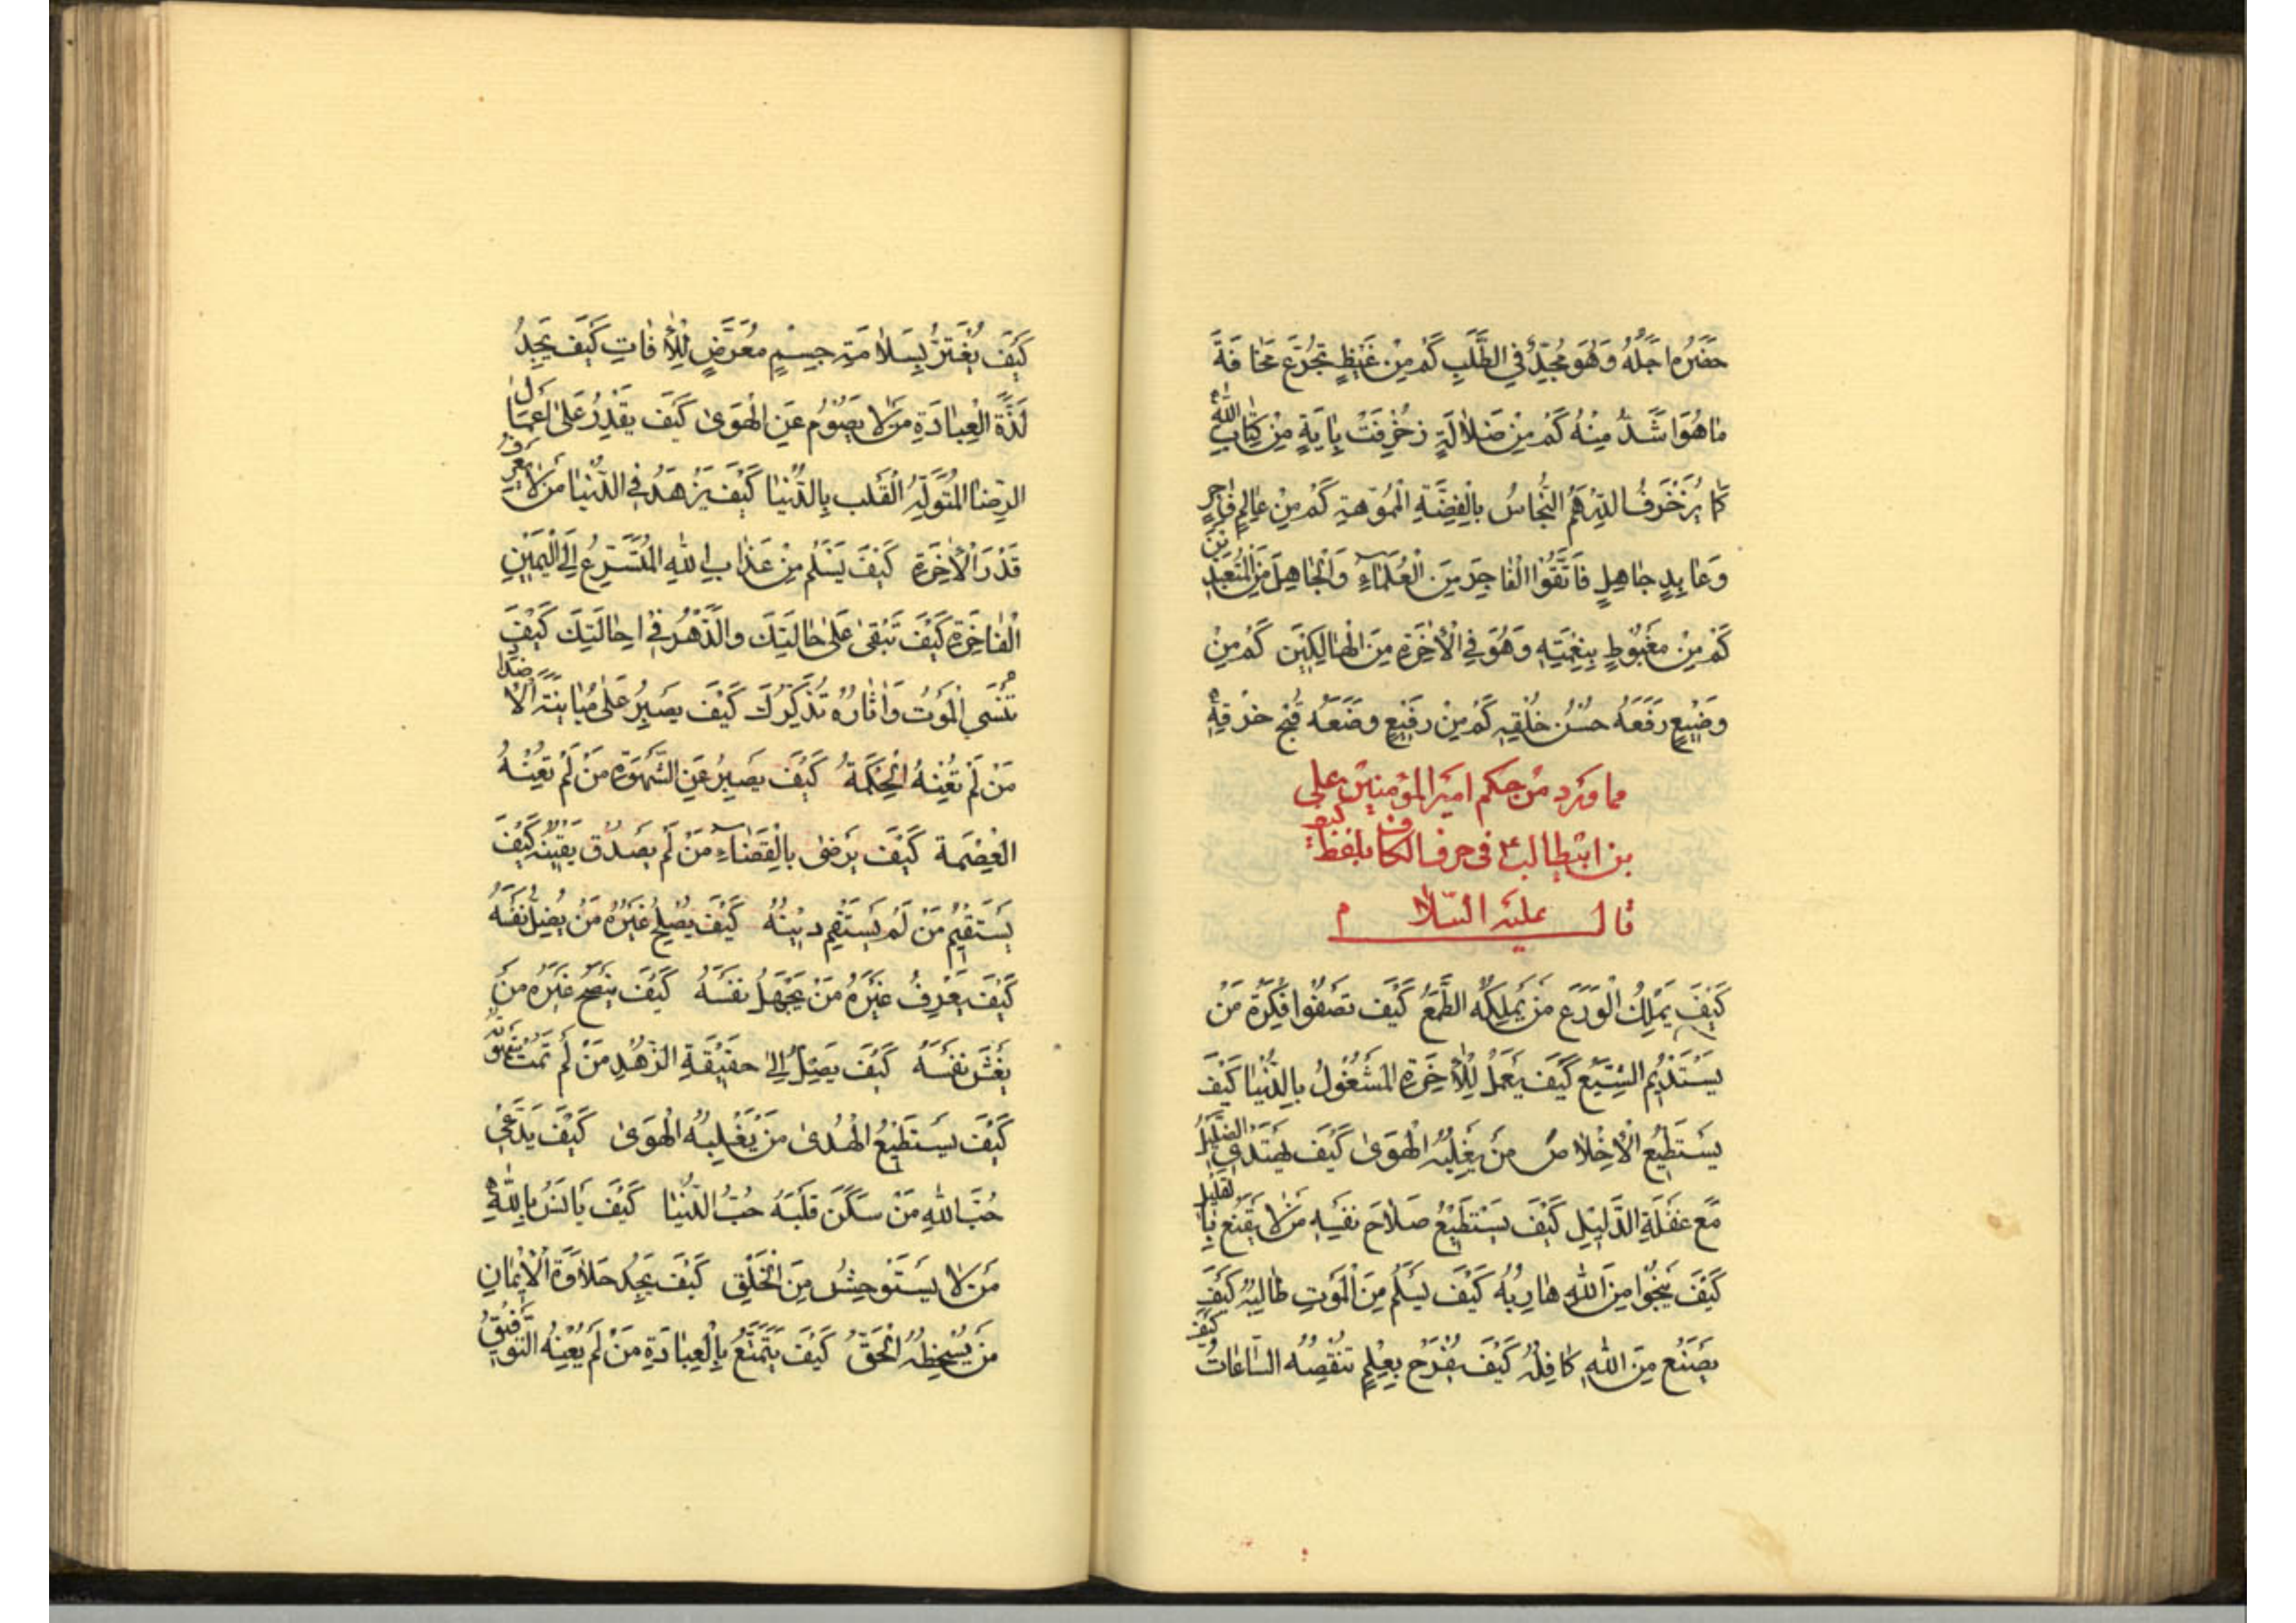 حَضَرَهُ اَجَلُهُ وَهُوَ مُجِدٌّ فِي الطَّلَبِ كَمْ مِنْ غَيْظٍ تُجُرِّعَ مَخَافَةَ
مَا هُوَ اَشَدُّ مِنْهُ كَمْ مِنْ ضَلَالَةٍ زُخْرِفَتْ بِايَةٍ مِنْ كِتَابِ اللهِ
كَمَا يُزَخْرَفُ الدِّرْهَمُ النُّحَاسُ بِالْفِضَّةِ الْمُمَوَّهَةِ كَمْ مِنْ عَالِمٍ فَاجِرٍ
وَعَابِدٍ جَاهِلٍ فَاتَّقُوا الْفَاجِرَ مِنَ الْعُلَمَاءِ وَالْجَاهِلَ مِنَ الْمُتَعَبِّدِينَ
كَمْ مِنْ مَغْبُوطٍ بِنِعْمَتِهِ وَهُوَ فِي الْاخِرَةِ مِنَ الْهَالِكِينَ كَمْ مِنْ
وَضِيعٍ رَفَعَهُ حُسْنُ خُلْقِهِ كَمْ مِنْ رَفِيعٍ وَضَعَهُ قُبْحُ خُرْقِهِ
مما ورد من حكم امير المؤمنين علي
بن ابيطالب ع في حرف الكاف بلفظ كيف
قال عليه السلام
كَيْفَ يَمْلِكُ الْوَرَعَ مَنْ يَمْلِكُهُ الطَّمَعُ كَيْفَ تَصْفُوا فِكْرَةُ مَنْ
يَسْتَدِيمُ الشِّبَعَ كَيْفَ يَعْمَلُ لِلْاخِرَةِ الْمَشْغُولُ بِالدُّنْيَا كَيْفَ
يَسْتَطِيعُ الْاِخْلَاصَ مَنْ يَغْلِبُهُ الْهَوَى كَيْفَ يَهْتَدِي الضَّلِيلُ
مَعَ غَفْلَةِ الدَّلِيلِ كَيْفَ يَسْتَطِيعُ صَلَاحَ نَفْسِهِ مَنْ لَا يَقْنَعُ بِالْقَلِيلِ
كَيْفَ يَنْجُوا مِنَ اللهِ هَارِبُهُ كَيْفَ يَسْلَمُ مِنَ الْمَوْتِ طَالِبُهُ كَيْفَ
يَضِيعُ مَنِ اللهُ كَافِلُهُ كَيْفَ يَفْرَحُ بِعُمْرٍ تَنْقُصُهُ السَّاعَاتُ كيف
كَيْفَ يَغْتَرُّ بِسَلَامَةِ جِسْمٍ مُعَرَّضٍ لِلْافَاتِ كَيْفَ يَجِدُ
لَذَّةَ الْعِبَادَةِ مَنْ لَا يَصُومُ عَنِ الْهَوَى كَيْفَ يَقْدِرُ عَلَى اَعْمَالِ
الرِّضَا الْمُتَوَلِّهُ الْقَلْبِ بِالدُّنْيَا كَيْفَ يَزْهَدُ فِي الدُّنْيَا مَنْ لَا يَعْرِفُ
قَدْرَ الْاخِرَةِ كَيْفَ يَسْلَمُ مِنْ عَذَابِ اللهِ الْمُتَسَرِّعُ اِلَى الْيَمِينِ
الْفَاجِرَةِ كَيْفَ تَبْقَى عَلَى حَالَتِكَ وَالدَّهْرُ فِي اِحَالَتِكَ كَيْفَ
تَنْسَى الْمَوْتَ وَاثَارُهُ تُذَكِّرُكَ كَيْفَ يَصْبِرُ عَلَى مُبَايَنَةِ الْاَضْدَادِ
مَنْ لَمْ تُعِنْهُ الْحِكْمَةُ كَيْفَ يَصْبِرُ عَنِ الشَّهْوَةِ مَنْ لَمْ تُعِنْهُ
الْعِصْمَةُ كَيْفَ يَرْضَى بِالْقَضَاءِ مَنْ لَمْ يَصْدُقْ يَقِينُهُ كَيْفَ
يَسْتَقِيمُ مَنْ لَمْ يَسْتَقِمْ دِينُهُ كَيْفَ يُصْلِحُ غَيْرَهُ مَنْ يُضِلُّ نَفْسَهُ
كَيْفَ يَعْرِفُ غَيْرَهُ مَنْ يَجْهَلُ نَفْسَهُ كَيْفَ يَنْصَحُ غَيْرَهُ مَنْ
يَغُشُّ نَفْسَهُ كَيْفَ يَصِلُ اِلَى حَقِيقَةِ الزُّهْدِ مَنْ لَمْ تَمُتْ شَهْوَتُهُ
كَيْفَ يَسْتَطِيعُ الْهُدَى مَنْ يَغْلِبُهُ الْهَوَى كَيْفَ يَدَّعِي
حُبَّ اللهِ مَنْ سَكَنَ قَلْبَهُ حُبُّ الدُّنْيَا كَيْفَ يَانَسُ بِاللهِ
مَنْ لَا يَسْتَوْحِشُ مِنَ الْخَلْقِ كَيْفَ يَجِدُ حَلَاوَةَ الْاِيمَانِ
مَنْ يُسْخِطُهُ الْحَقُّ كَيْفَ يَتَمَتَّعُ بِالْعِبَادَةِ مَنْ لَمْ يُعِنْهُ التَّوْفِيقُ